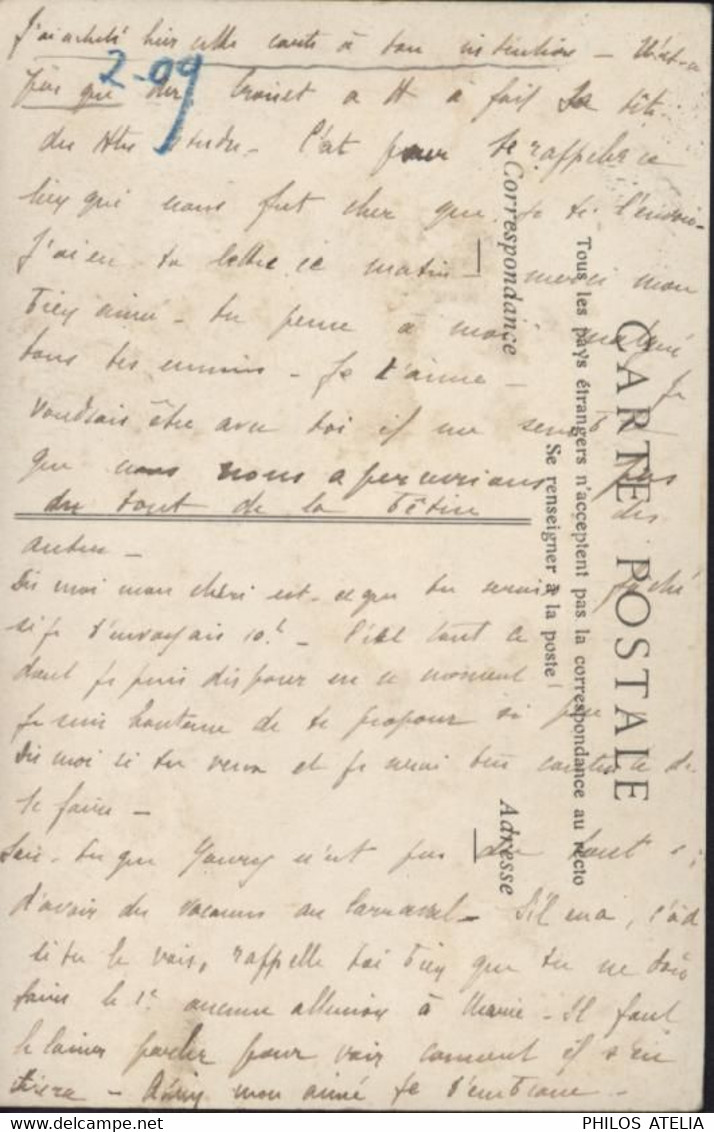 J'ai acheté hier cette carte à ton intention - N'est-ce
pas que du Croiset a H a fait sa tête
du Hte - C'est pour te rappeler ce
lieu qui nous fut cher que je te l'envoie -
J'ai eu ta lettre ce matin - merci mon
bien aimé - tu pense à moi malgré
tous tes ennuis - Je t'aime - Je
voudrais être avec toi il me semble
que nous nous apercevrions pas
du tout de la bêtise des
autres -
Dis moi mon chéri est-ce que tu serais fâché
si je t'envoyais 10f - C'est tout ce
dont je puis disposer en ce moment
Je suis honteuse de te proposer si peu
Dis moi si tu veux et je serai bien contente de
le faire -
Sais-tu que Youry n'est pas du tout sûr
d'avoir des vacances au Carnaval - S'il en a, c'àd
si tu le vois, rappelle toi bien que tu ne dois
faire le 1er aucune allusion à Marie - Il faut
le laisser parler pour voir comment il s'en
tirera - Adieu mon aimé je t'embrasse -
2-09
CARTE POSTALE
Tous les pays étrangers n'acceptent pas la correspondance au recto
Se renseigner à la poste
Correspondance
Adresse
PHILOS ATELIA